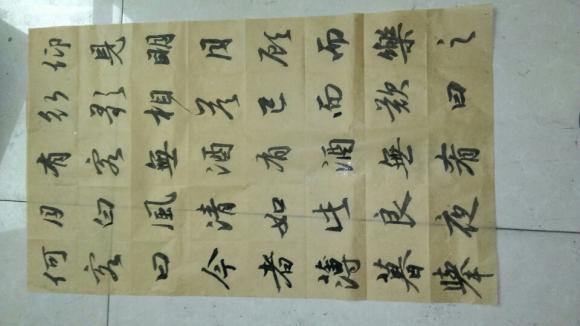 仰見明月顧而樂之
行歌相答已而歎曰
有客無酒有酒無肴
月白風清如此良夜
何客曰今者薄暮舉